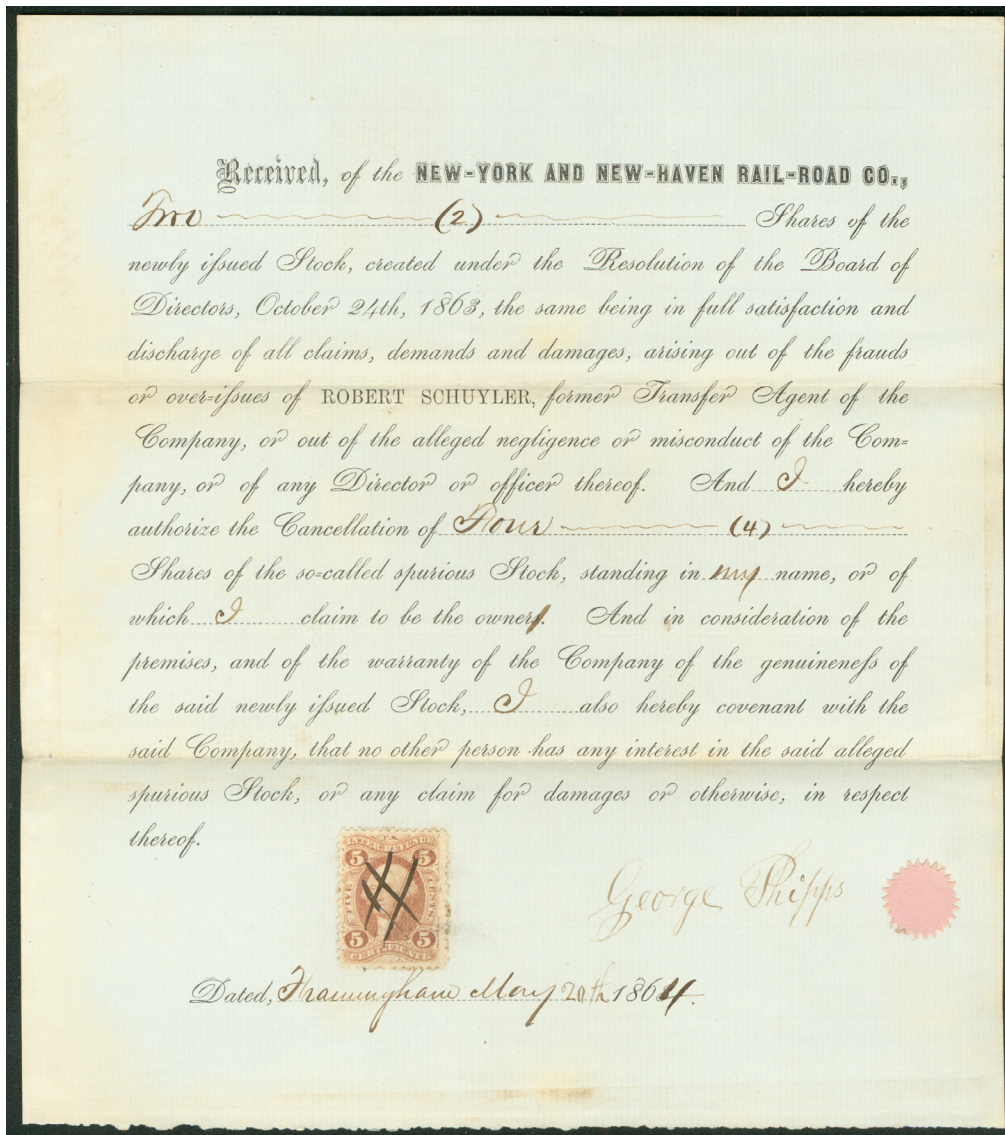 Received, of the NEW-YORK AND NEW-HAVEN RAIL-ROAD CO.,
Two (2) Shares of the
newly issued Stock, created under the Resolution of the Board of
Directors, October 24th, 1863, the same being in full satisfaction and
discharge of all claims, demands and damages, arising out of the frauds
or over-issues of ROBERT SCHUYLER, former Transfer Agent of the
Company, or out of the alleged negligence or misconduct of the Com-
pany, or of any Director or officer thereof. And I hereby
authorize the Cancellation of Four (4)
Shares of the so-called spurious Stock, standing in my name, or of
which I claim to be the owner. And in consideration of the
premises, and of the warranty of the Company of the genuineness of
the said newly issued Stock, I also hereby covenant with the
said Company, that no other person has any interest in the said alleged
spurious Stock, or any claim for damages or otherwise, in respect
thereof.
U.S.
INTER. REVENUE
5 5
FIVE CENTS
5 5
CERTIFICATE
George Phipps
Dated, Framingham May 20th 1864.